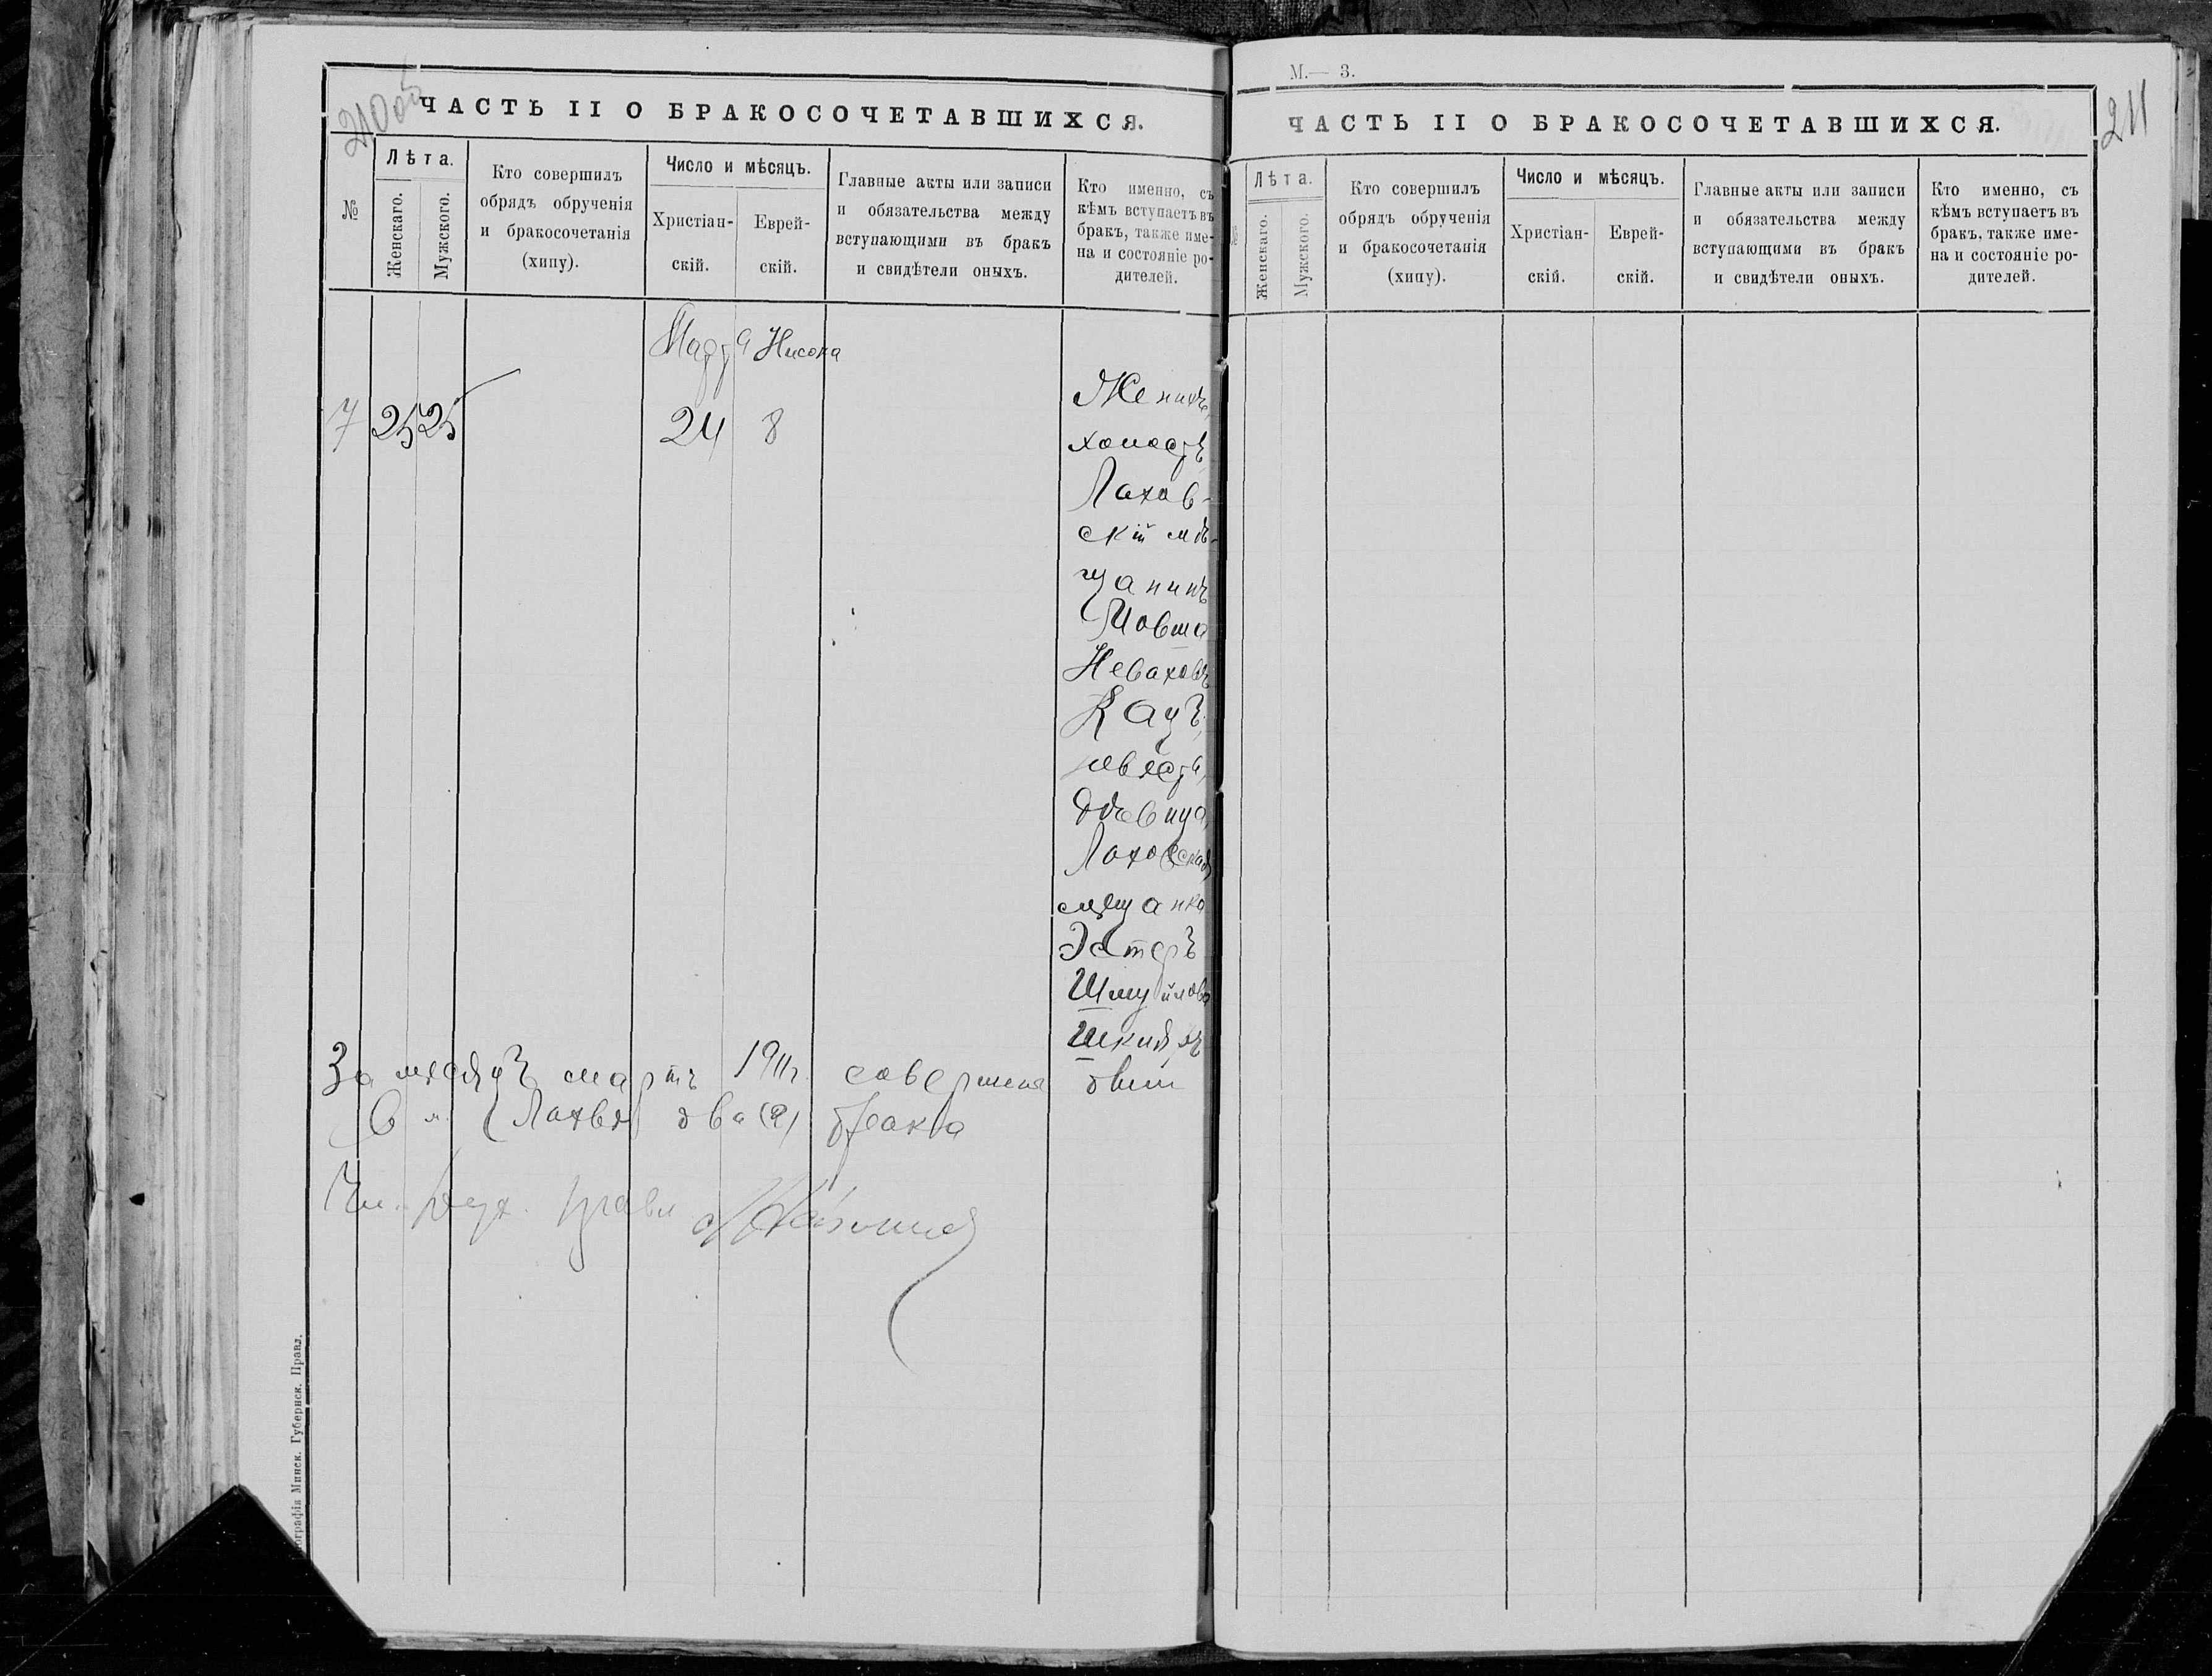 210об
ЧАСТЬ II О БРАКОСОЧЕТАВШИХСЯ.
№
Лѣта.
Женскаго.
Мужского.
Кто совершилъ
обрядъ обрученія
и бракосочетанія
(хипу).
Число и мѣсяцъ.
Христіан-
скій.
Еврей-
скій.
Главные акты или записи
и обязательства между
вступающими въ бракъ
и свидѣтели оныхъ.
Кто именно, съ
кѣмъ вступаетъ въ
бракъ, также име-
на и состояніе ро-
дителей.
Марта Нисона
7 25 25 24 8
Женихъ,
холостъ,
Лахов-
скій мѣ-
щанинъ
Мовша
Неваховъ
Кацъ,
невѣста,
дѣвица,
Лаховская
мѣщанка
Эстеръ
Шмуйлова
За мѣсяцъ мартъ 1911г. совершено
в м. Лахвѣ два (2) брака
Чл. Дух. Правл
ографія Минск. Губернск. Правл.
М.— 3.
211
ЧАСТЬ II О БРАКОСОЧЕТАВШИХСЯ.
Лѣта.
Женскаго.
Мужского.
Кто совершилъ
обрядъ обрученія
и бракосочетанія
(хипу).
Число и мѣсяцъ.
Христіан-
скій.
Еврей-
скій.
Главные акты или записи
и обязательства между
вступающими въ бракъ
и свидѣтели оныхъ.
Кто именно, съ
кѣмъ вступаетъ въ
бракъ, также име-
на и состояніе ро-
дителей.